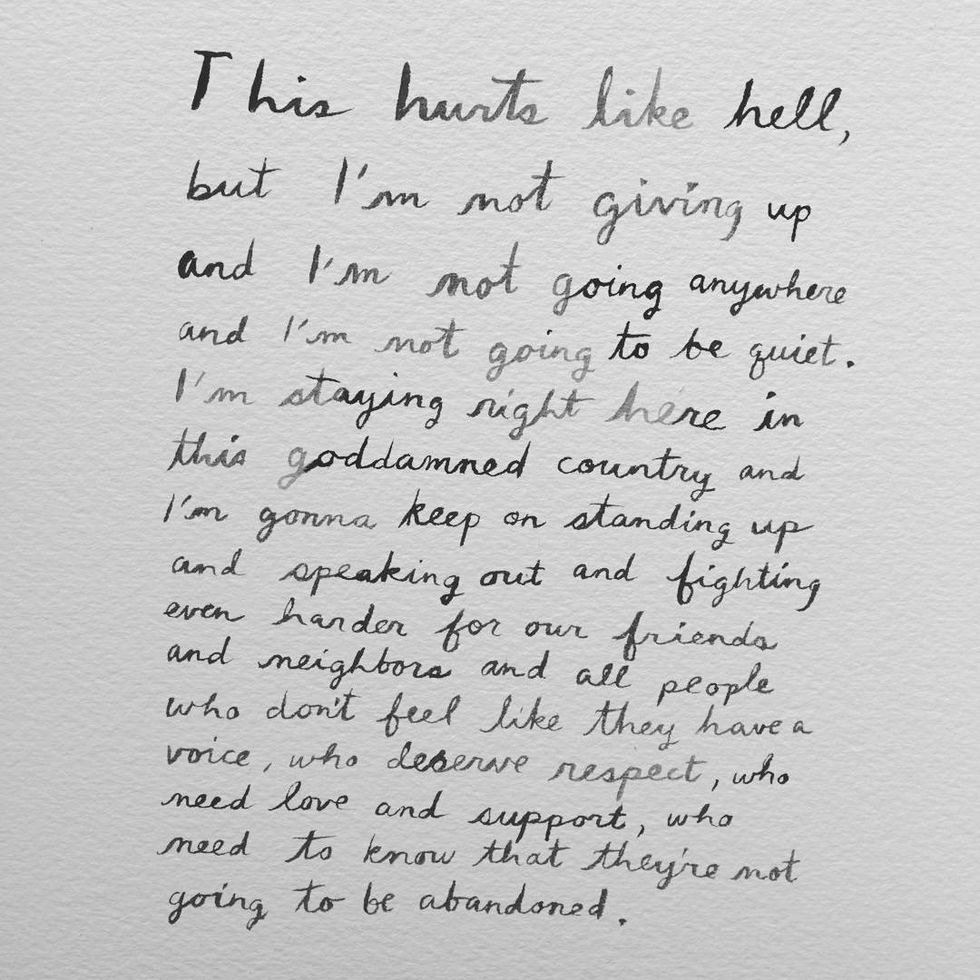 This hurts like hell,
but I'm not giving up
and I'm not going anywhere
and I'm not going to be quiet.
I'm staying right here in
this goddamned country and
I'm gonna keep on standing up
and speaking out and fighting
even harder for our friends
and neighbors and all people
who don't feel like they have a
voice, who deserve respect, who
need love and support, who
need to know that they're not
going to be abandoned.